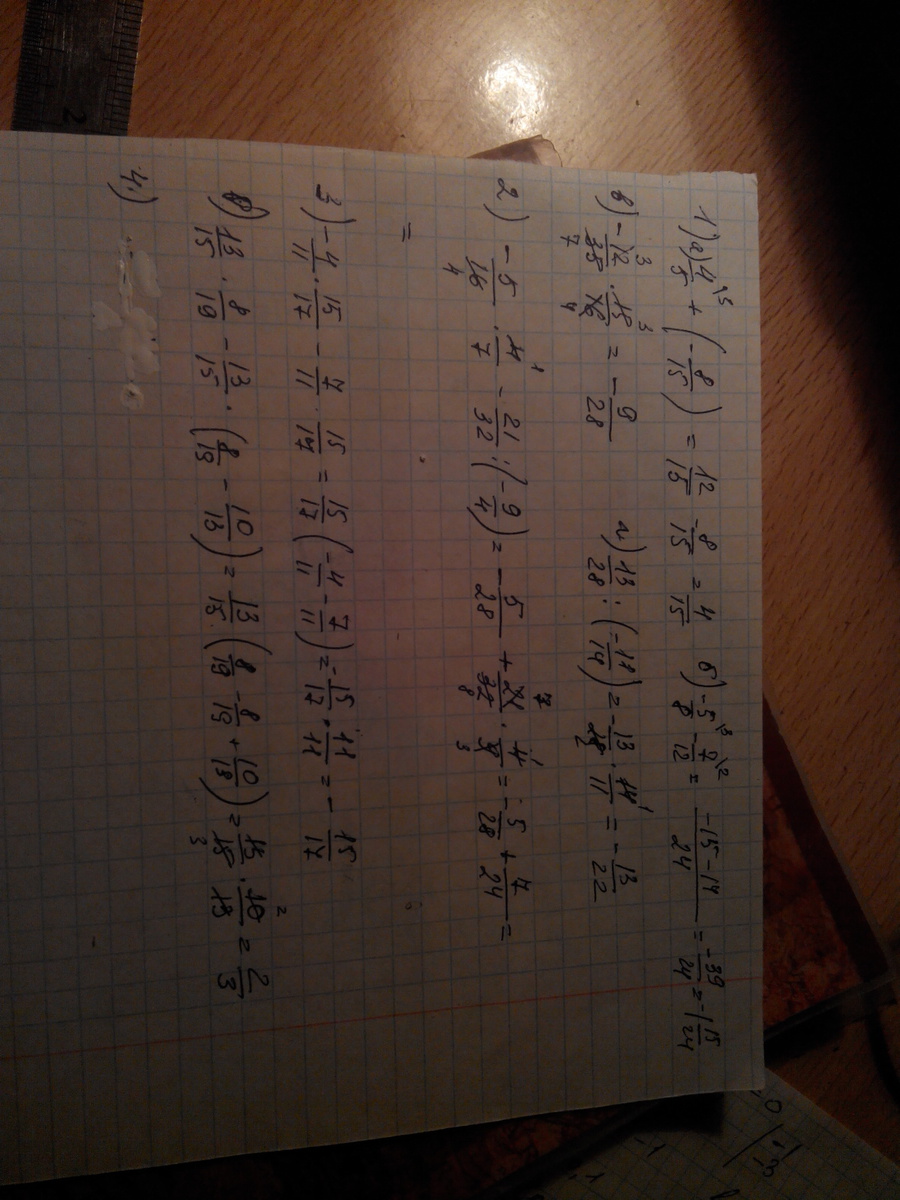 1) а) 4/5 + (-8/15) = 12/15 - 8/15 = 4/15 б) -5/8 - 7/12 = (-15-14)/24 = -39/24 = -1 15/24
в) -12/35 · 15/16 = -9/28 г) 13/28 : (-11/14) = -13/28 · 14/11 = -13/22
2) -5/16 · 4/7 - 21/32 : (-9/4) = -5/28 + 21/32 · 4/9 = -5/28 + 7/24 =
=
3) -4/11 · 15/17 - 7/11 · 15/17 = 15/17 (-4/11 - 7/11) = -15/17 · 11/11 = -15/17
13/15 · 8/19 - 13/15 · (8/19 - 10/13) = 13/15 (8/19 - 8/19 + 10/13) = 13/15 · 10/13 = 2/3
4)
2